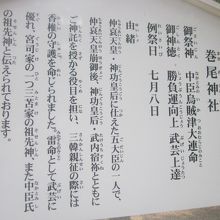 巻尾神社
御祭神　中臣烏賊津大連命
御神徳　勝負運向上　武芸上達
例祭　七月八日
由緒
仲哀天皇、神功皇后に仕えた五大臣の一人で、
仲哀天皇崩御後、神功皇后、武内宿祢とともに
ご神託を授かる役を担い、三韓親征の際には
審権の守護を命じられました。雷命として武芸に
優れ、宮司家の一つ三苫家の祖先神、また中臣氏
の祖先神と伝えられております。